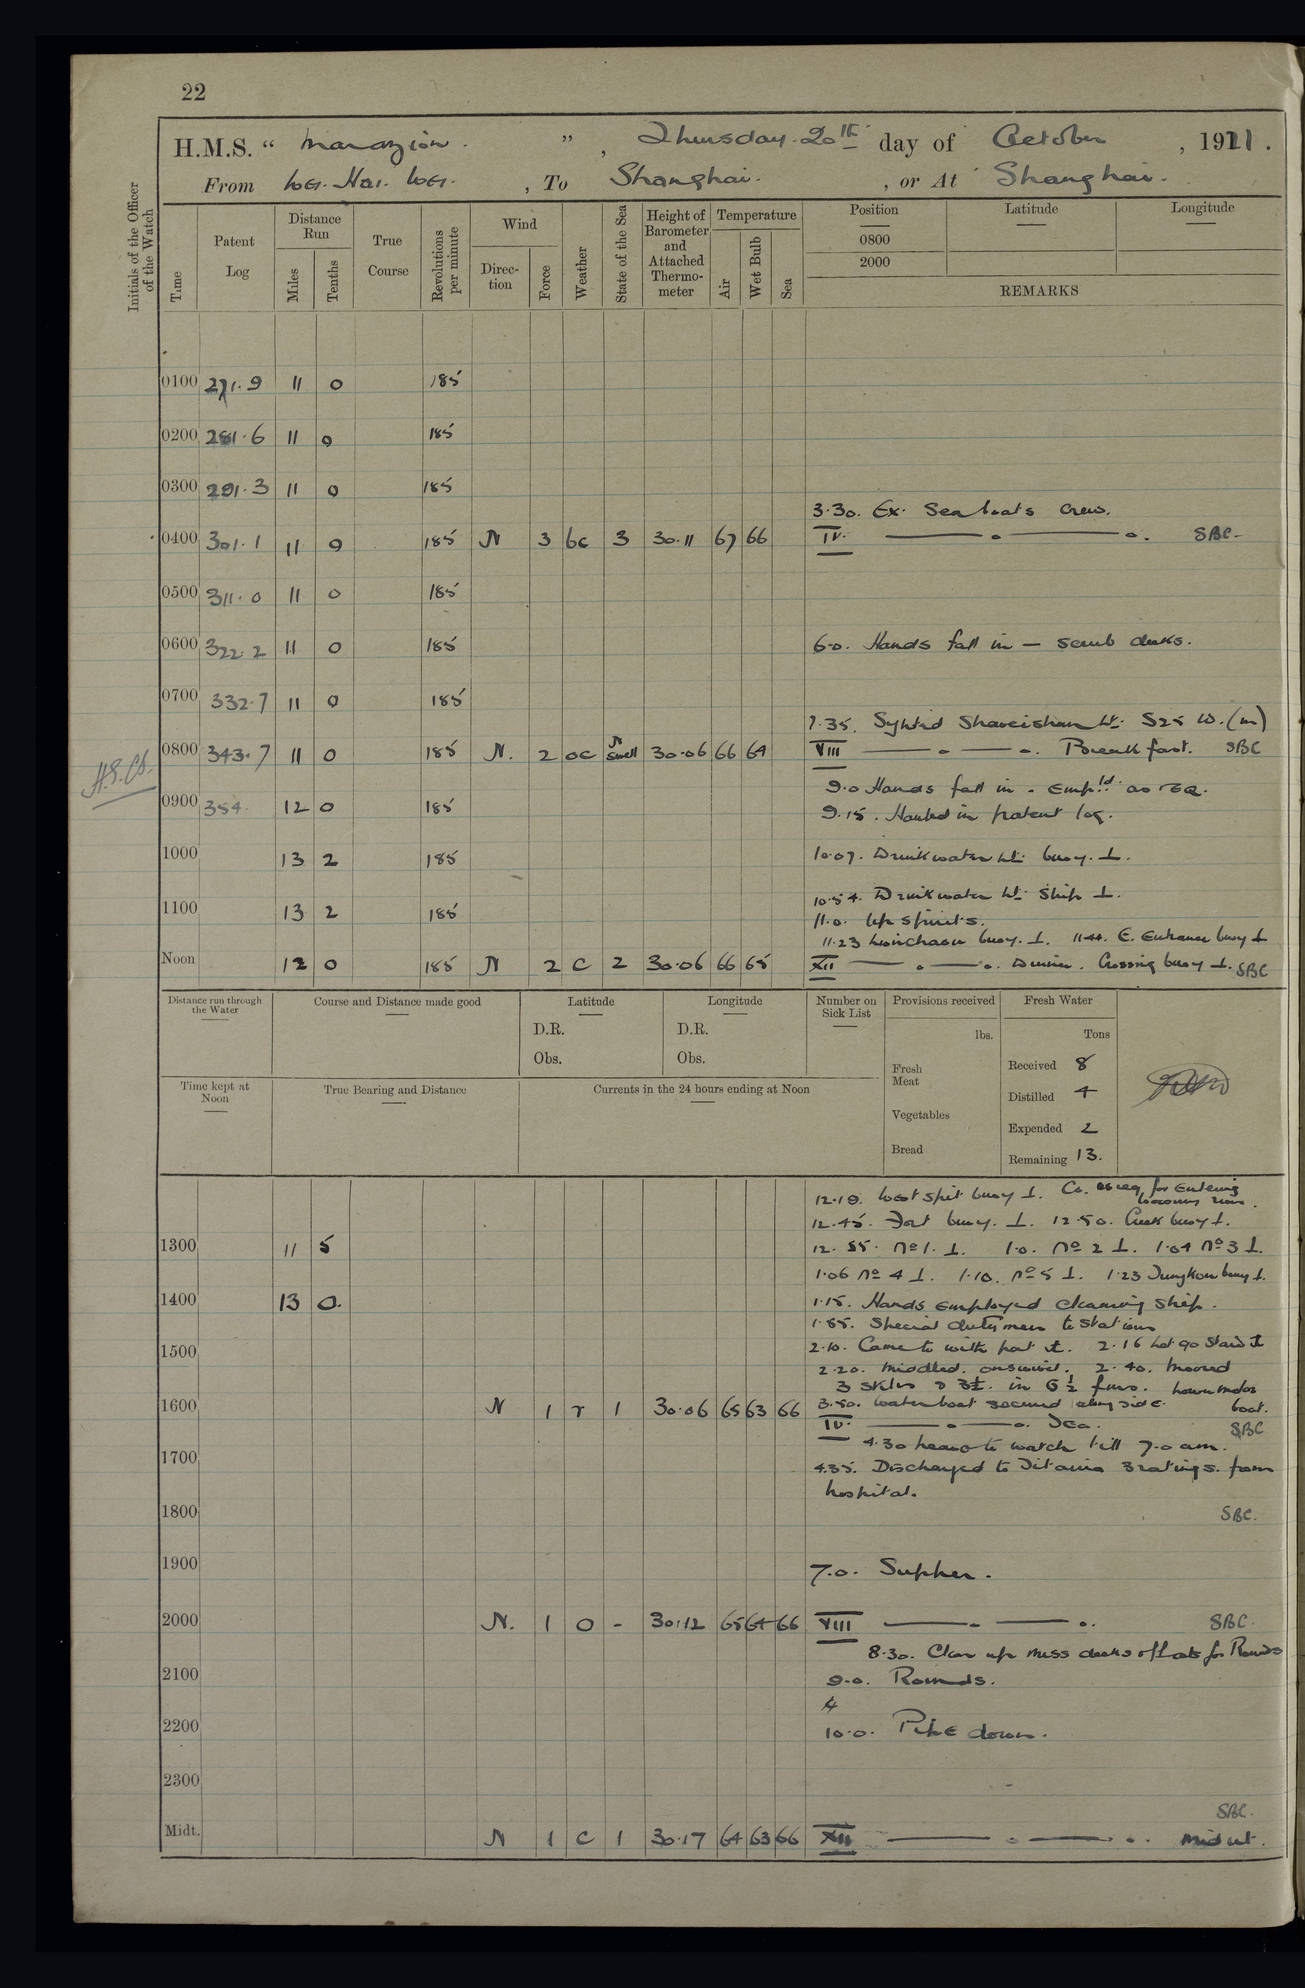 22
H.M.S. “ Marazion. ” , Thursday. 20th day of October , 1921.
From Wei. Hai. Wei. , To Shanghai. , or At Shanghai.
Initials of the Officer of the Watch
Time Patent Log Distance Run Miles Tenths True Course Revolutions per minute Wind Direction Force Weather State of the Sea Height of Barometer and Attached Thermometer Temperature Air Wet Bulb Sea Position Latitude Longitude
0800
2000
REMARKS
0100 271.9 11 0 185
0200 281.6 11 0 185
0300 291.3 11 0 185
3.30. Ex. Sea boats crew.
0400 301.1 11 0 185 N 3 bc 3 30.11 67 66 IV. SBC.
0500 311.0 11 0 185
0600 322.2 11 0 185 6.0. Hands fall in — scrub decks.
0700 332.7 11 0 185
7.35. Sighted Shaweishan Lt. S25 W. (m)
0800 343.7 11 0 185 N. 2 oc N Swell 30.06 66 64 VIII Breakfast. SBC
9.0 Hands fall in. Emp'ld as req.
0900 354. 12 0 185 9.15. Hauled in patent log.
1000 13 2 185 10.07. Drinkwater Lt. buoy. ⊥.
10.54. Drinkwater Lt. Ship ⊥.
1100 13 2 185 11.0. Up spirits.
11.23 buoy. ⊥. 11.44. E. Entrance buoy ⊥
Noon 12 0 185 N 2 C 2 30.06 66 65 XII Dinner. Crossing buoy ⊥. SBC
Distance run through the Water Course and Distance made good Latitude Longitude Number on Sick List Provisions received Fresh Water
D.R. D.R. lbs. Tons
Obs. Obs. Fresh Meat Received 8
Time kept at Noon True Bearing and Distance Currents in the 24 hours ending at Noon Distilled 4
Vegetables Expended 2
Bread Remaining 13.
12.19. West spit buoy ⊥. Co. as req for Entering
Woosung river.
12.45. Fort buoy. ⊥. 12.50. Creek buoy ⊥.
1300 11 5 12.55. No 1. ⊥. 1.0. No 2 ⊥. 1.04 No 3 ⊥.
1.06 No 4 ⊥. 1.10. No 5 ⊥. 1.23 buoy ⊥.
1400 13 0. 1.15. Hands employed cleaning ship.
1.55. Special duty men to stations
1500 2.10. Came to with port ⚓. 2.16 Let go Starbd ⚓
2.20. Middled. 2.40. Moored
3 Skls & 3½. in 6½ fms.
1600 N 1 r 1 30.06 65 63 66 3.50. Water boat secured alongside. boat.
IV. Tea. SBC
4.30 to watch till 7.0 am.
1700 4.35. Discharged to Titania 3 ratings. from
hospital.
1800 SBC.
1900 7.0. Supper.
2000 N. 1 O - 30.12 65 64 66 VIII SBC.
8.30. Clear up mess decks & flats for Rounds
2100 9.0. Rounds.
2200 10.0. Pipe down.
2300
SBC.
Midt. N 1 C 1 30.17 64 63 66 XII Midnt.